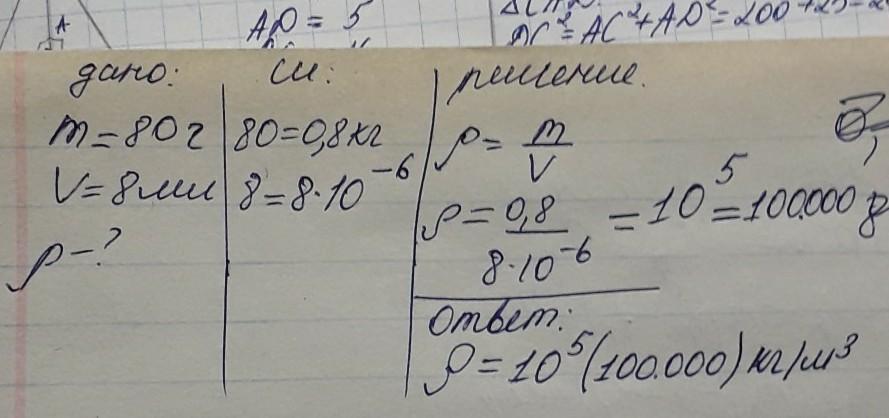 A
AD = 5
DC²=AC²+AD²=200+25
дано:
m=80г
V=8мл
ρ-?
си:
80=0,8кг
8=8·10⁻⁶
решение.
ρ = m/V
ρ = 0,8/8·10⁻⁶ = 10⁵=100.000
Ответ:
ρ=10⁵(100.000) кг/м³